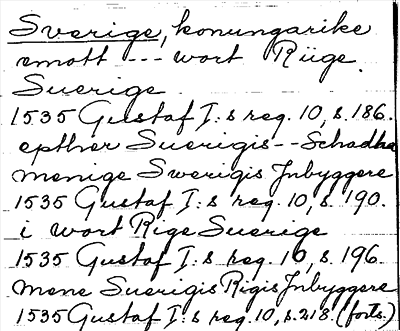 Sverige, konungarike
emott --- wort Rüge
Suerige.
1535 Gustaf I:s reg. 10, s. 186.
epther Suerigis -- Schadha
menige Swerigis Jnbyggere
1535 Gustaf I:s reg. 10, s. 190.
i wort Rige Suerige
1535 Gustaf I:s reg. 10, s. 196.
mene Suerigis Rigis Jnbyggere
1535 Gustaf I:s reg. 10, s. 218. (forts.)